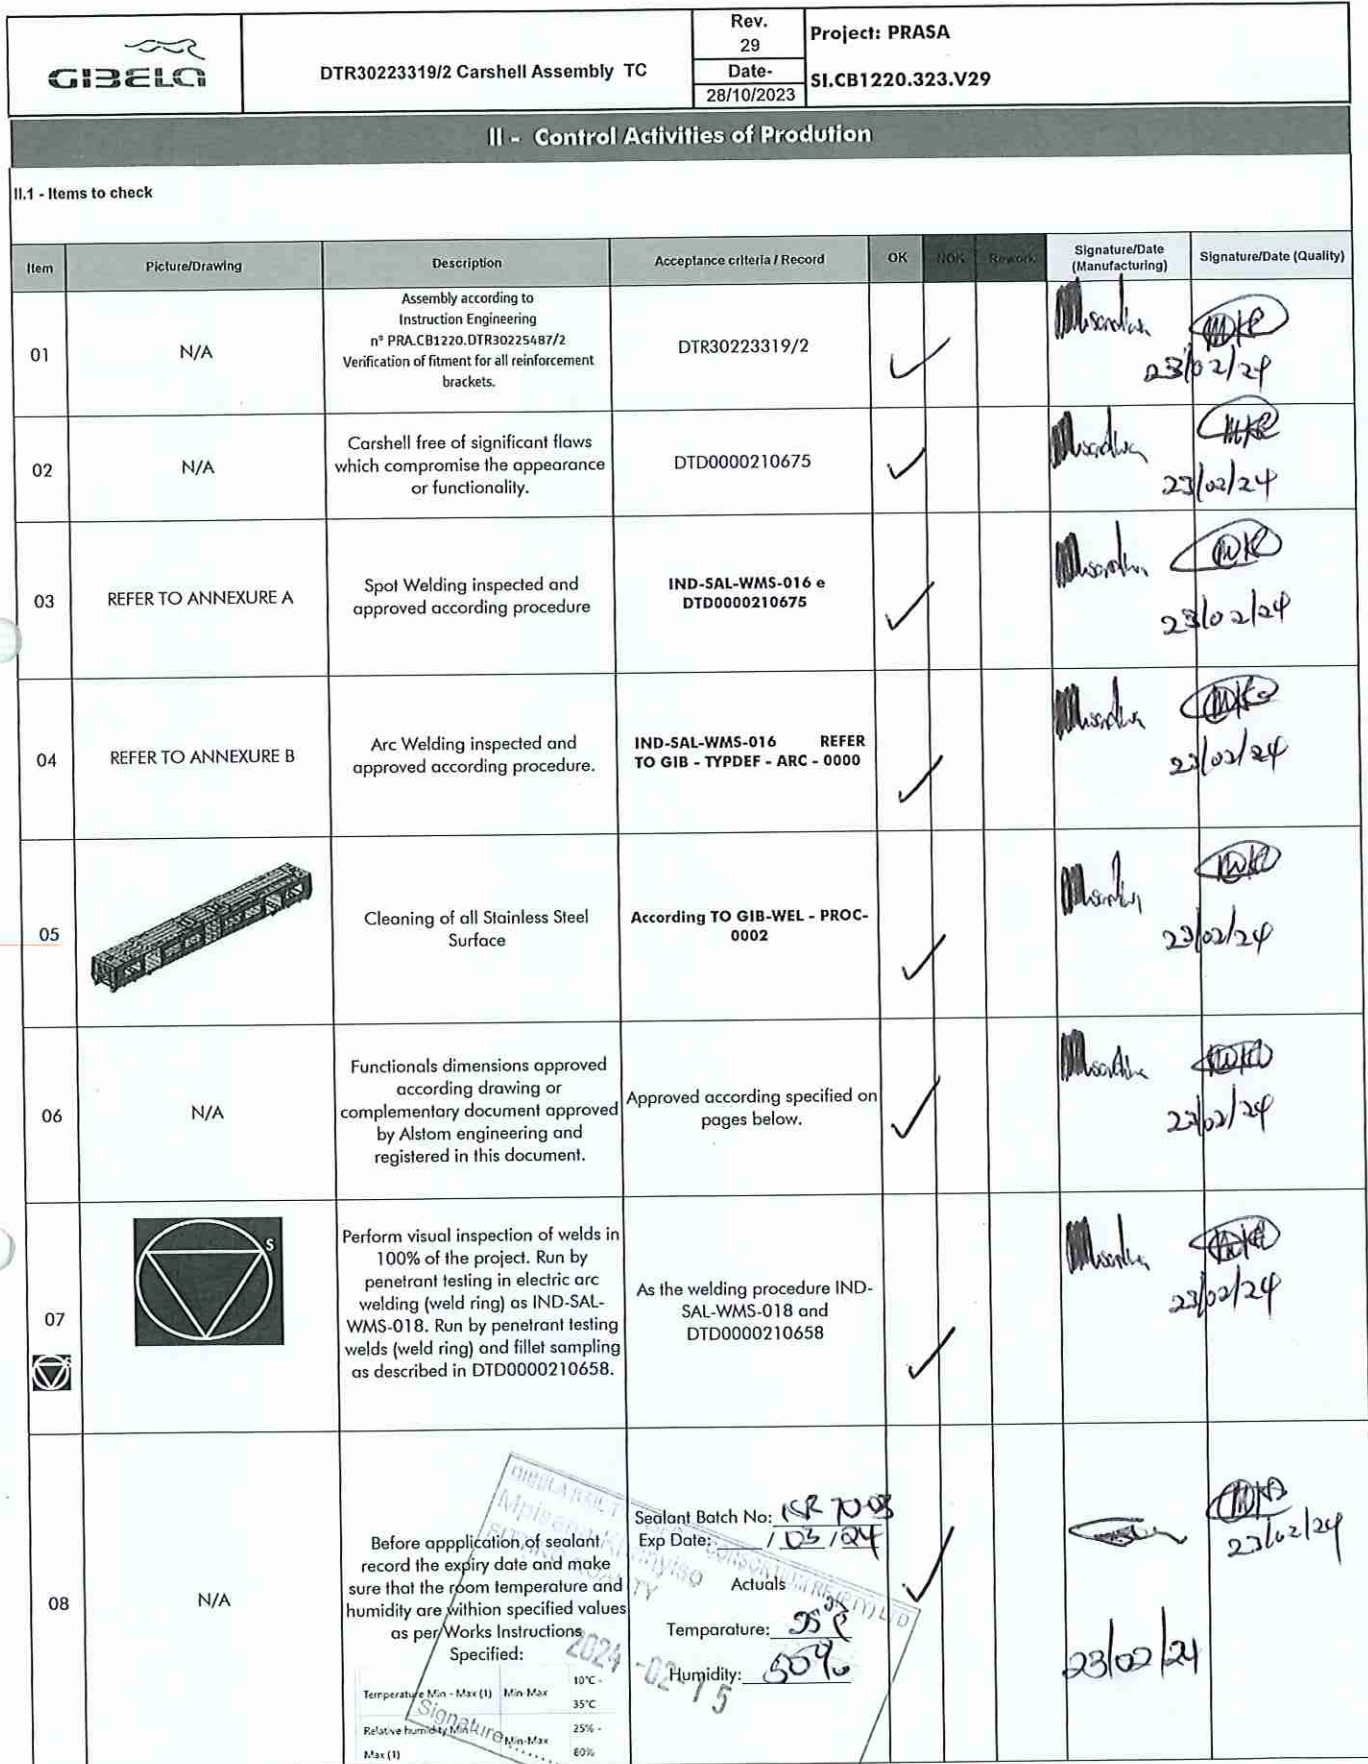 GIBELA
DTR30223319/2 Carshell Assembly TC
Rev.
29
Date-
28/10/2023
Project: PRASA
SI.CB1220.323.V29
II - Control Activities of Prodution
II.1 - Items to check
Item
Picture/Drawing
Description
Acceptance criteria / Record
OK
NOK
Rework
Signature/Date
(Manufacturing)
Signature/Date (Quality)
01
N/A
Assembly according to
Instruction Engineering
n° PRA.CB1220.DTR30225487/2
Verification of fitment for all reinforcement
brackets.
DTR30223319/2
23/02/24
02
N/A
Carshell free of significant flaws
which compromise the appearance
or functionality.
DTD0000210675
23/02/24
03
REFER TO ANNEXURE A
Spot Welding inspected and
approved according procedure
IND-SAL-WMS-016 e
DTD0000210675
23/02/24
04
REFER TO ANNEXURE B
Arc Welding inspected and
approved according procedure.
IND-SAL-WMS-016 REFER
TO GIB - TYPDEF - ARC - 0000
23/02/24
05
Cleaning of all Stainless Steel
Surface
According TO GIB-WEL - PROC-
0002
23/02/24
06
N/A
Functionals dimensions approved
according drawing or
complementary document approved
by Alstom engineering and
registered in this document.
Approved according specified on
pages below.
23/02/24
07
S
Perform visual inspection of welds in
100% of the project. Run by
penetrant testing in electric arc
welding (weld ring) as IND-SAL-
WMS-018. Run by penetrant testing
welds (weld ring) and fillet sampling
as described in DTD0000210658.
As the welding procedure IND-
SAL-WMS-018 and
DTD0000210658
23/02/24
08
N/A
Before appplication,of sealant
record the expiry date and make
sure that the room temperature and
humidity are withion specified values
as per Works Instructions
Specified:
Temperature Min - Max (1) Min-Max 10°C -
35°C
Relative humidity Min - Min-Max 25% -
Max (1) 60%
Sealant Batch No:
Exp Date: / 03 / 24
Actuals
Temparature:
Humidity: 50%
23/02/24
23/02/24
2024-02-15
Signature